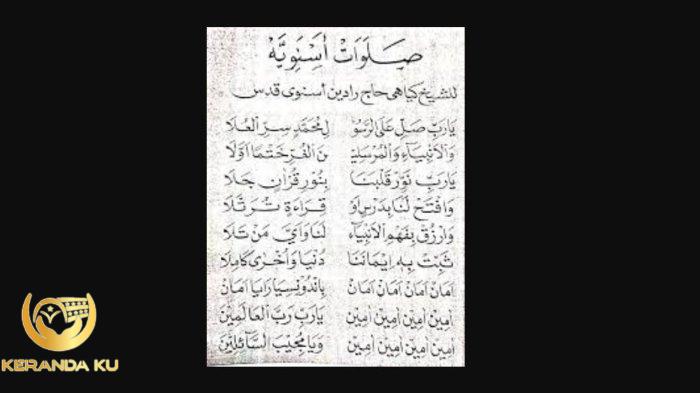 صَلَوَاتْ أَسْنَوِيَّهْ
للشيخ كياهي حاج رادين اسنوى قدس
يَارَبِّ صَلِّ عَلَى الرَّسُوْ لِ مُحَمَّدٍ سِرِّ الْعُلَا
وَالْاَنْبِيَآءِ وَالْمُرْسَلِيْـ ـنَ الْغُرِّ خَتْمًا اَوَّلَا
يَارَبِّ نَوِّرْ قَلْبَنَا بِنُوْرِ قُرْاٰنٍ جَلَا
وَافْتَحْ لَنَا بِدَرْسٍ اَوْ قِرَاءَةٍ تُرَتَّلَا
وَارْزُقْ بِفَهْمِ الْاَنْبِيَآء لَنَا وَاَيَّ مَنْ تَلَا
ثَبِّتْ بِهِ اِيْمَانَنَا دُنْيَا وَاُخْرٰى كَامِلَا
اَمَانْ اَمَانْ اَمَانْ اَمَانْ بِاِنْدُوْنِيْسِيَا رَايَا اَمَانْ
اٰمِيْنْ اٰمِيْنْ اٰمِيْنْ اٰمِيْنْ يَارَبِّ رَبَّ الْعَالَمِيْنْ
اٰمِيْنْ اٰمِيْنْ اٰمِيْنْ اٰمِيْنْ وَيَا مُجِيْبَ السَّائِلِيْنْ
KERANDA KU